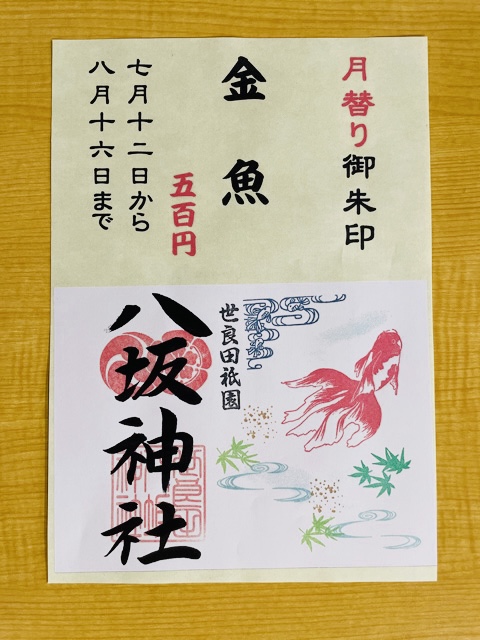 月替り御朱印
金魚
五百円
七月十二日から
八月十六日まで
世良田祇園
八坂神社